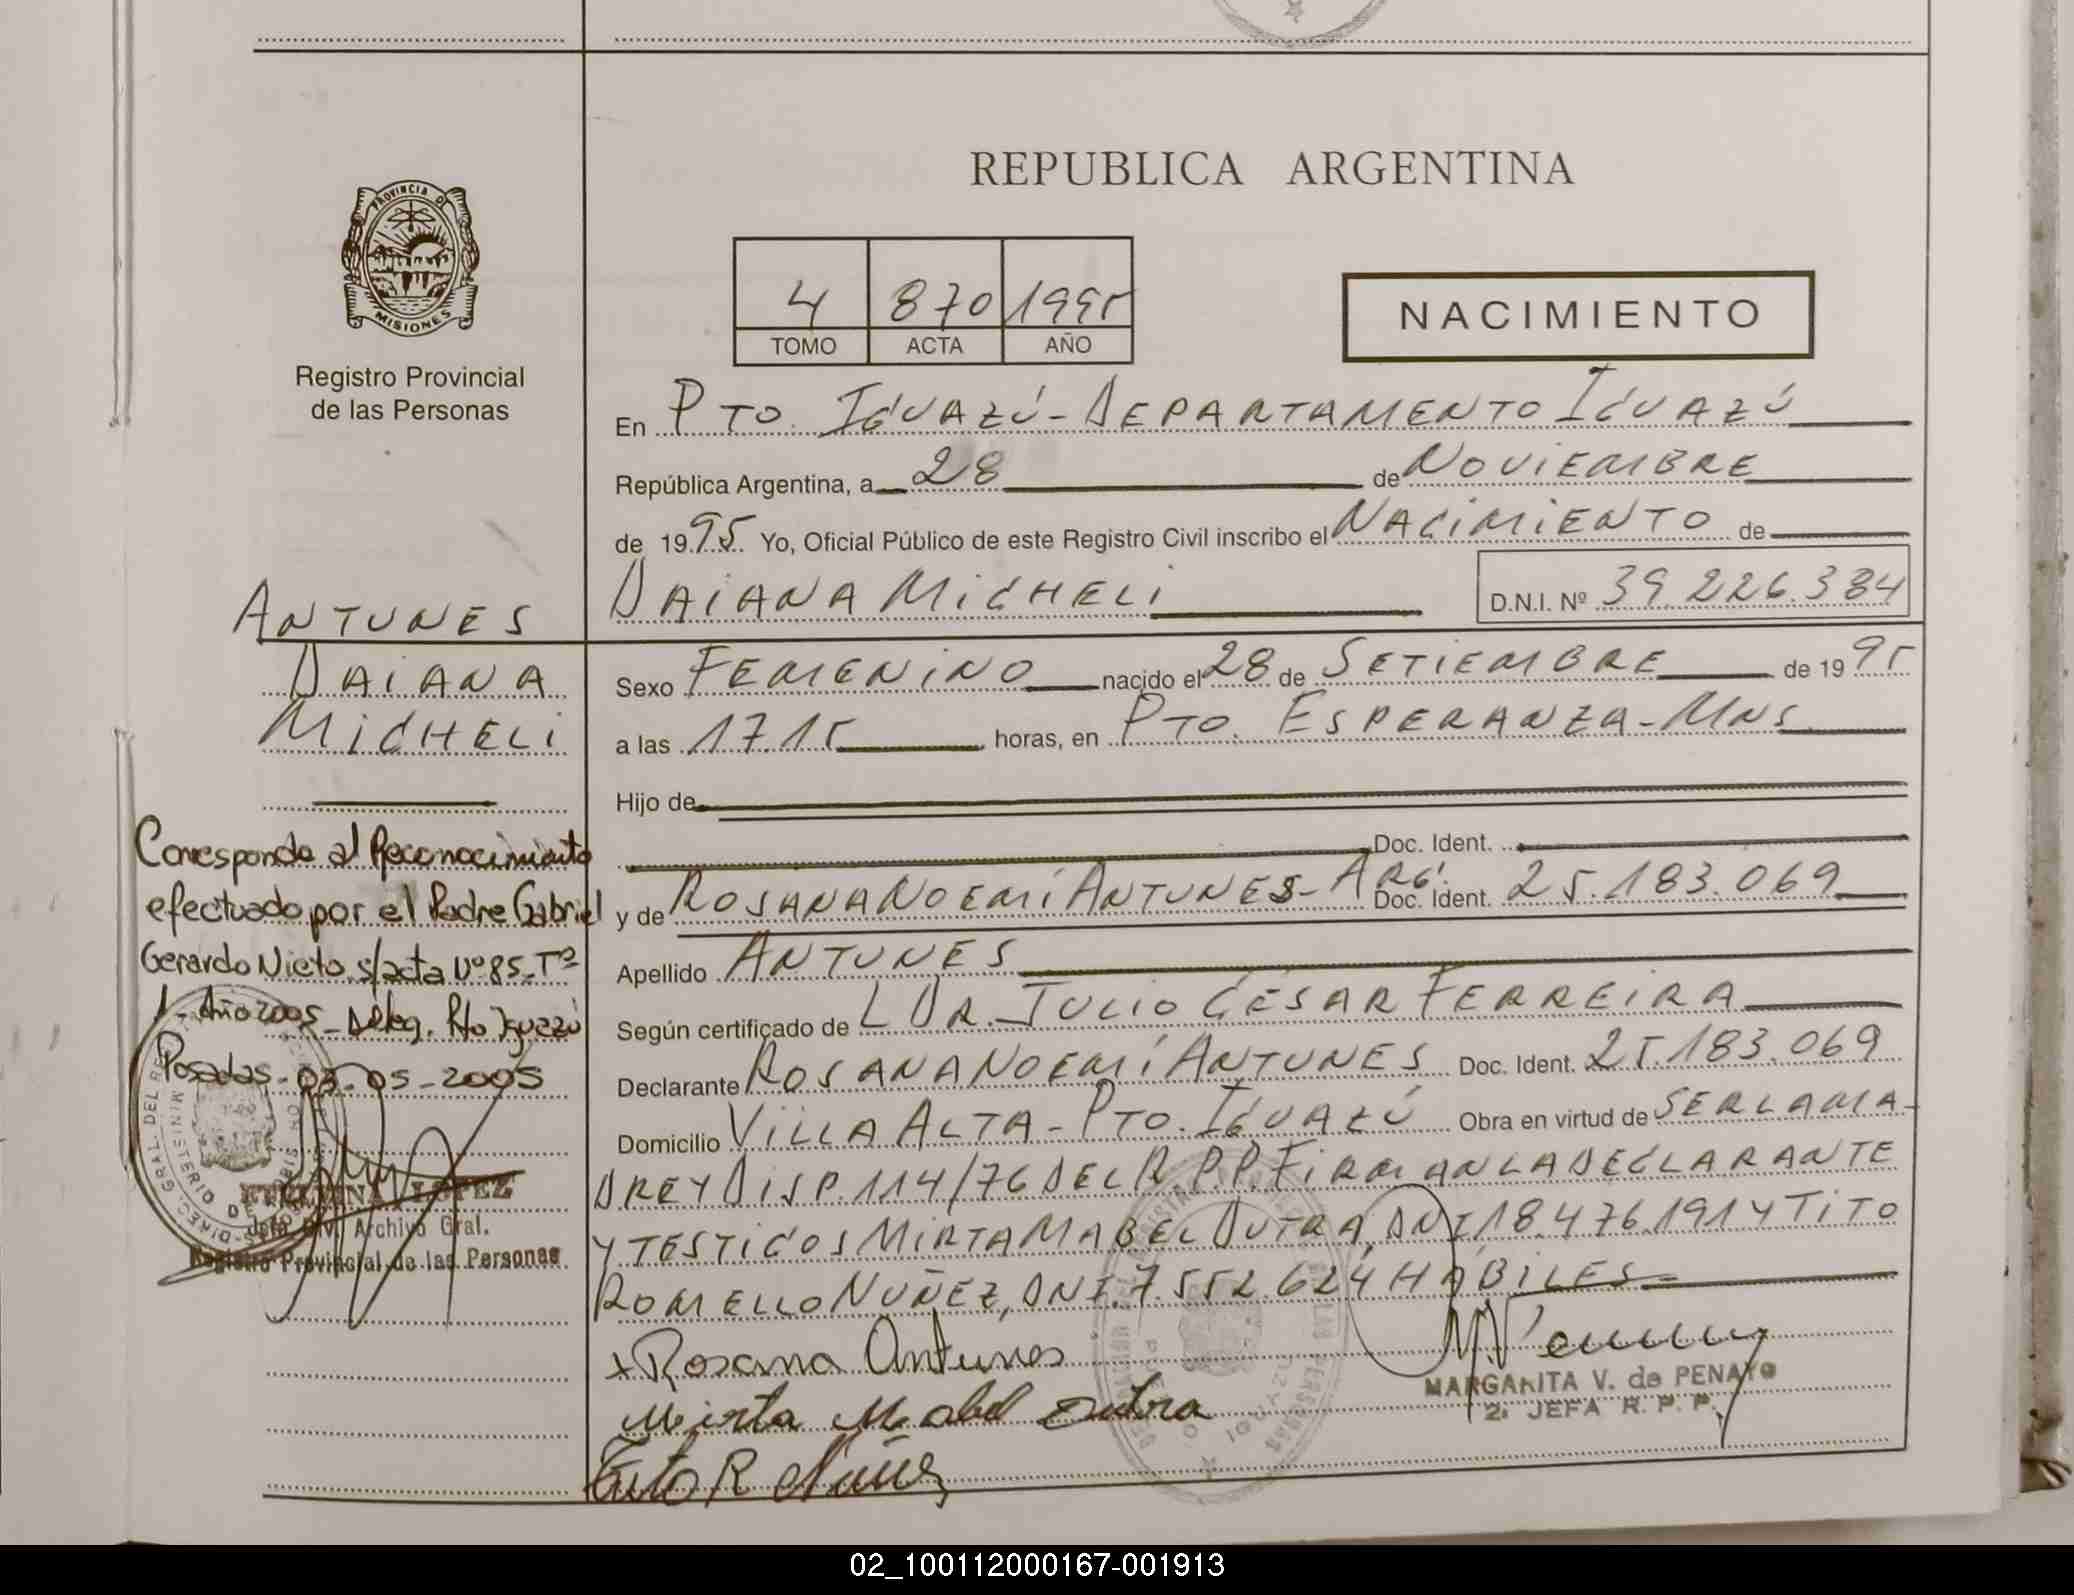 REPUBLICA ARGENTINA
PROVINCIA DE
MISIONES
Registro Provincial
de las Personas
4 870 1995
TOMO ACTA AÑO
NACIMIENTO
En PTO. IGUAZÚ - DEPARTAMENTO IGUAZÚ
República Argentina, a 28 de NOVIEMBRE
de 1995 Yo, Oficial Público de este Registro Civil inscribo el NACIMIENTO de
DAIANA MICHELI D.N.I. Nº 39.226.384
ANTUNES
DAIANA
MICHELI
Sexo FEMENINO nacido el 28 de SETIEMBRE de 1995
a las 17.15 horas, en PTO. ESPERANZA - MNS
Hijo de
Doc. Ident.
y de ROSANA NOEMÍ ANTUNES - ARG. Doc. Ident. 25.183.069
Apellido ANTUNES
Según certificado de L DR. JULIO CÉSAR FERREIRA
Declarante ROSANA NOEMÍ ANTUNES Doc. Ident. 25.183.069
Domicilio VILLA ALTA - PTO. IGUAZÚ Obra en virtud de SER LA MA-
DRE Y DISP. 114/76 DEL R.P.P. FIRMAN LA DECLARANTE
Y TESTIGOS MIRTA MABEL DUTRA, DNI 18.476.191 Y TITO
ROMELLO NUÑEZ, DNI. 7.552.624 HABILES -
x Rosana Antunes
Mirta Mabel Dutra
Tito R Nuñez
MARGARITA V. de PENAYO
2: JEFA R. P. P.
Corresponde al Reconocimiento
efectuado por el Padre Gabriel
Gerardo Nieto s/acta Nº 85 - Tº
1 - Año 2005 - Deleg. Pto Iguazú
Posadas - 03 - 05 - 2005
LOPEZ
Jefa Div. Archivo Gral.
Registro Provincial de las Personas
02_100112000167-001913